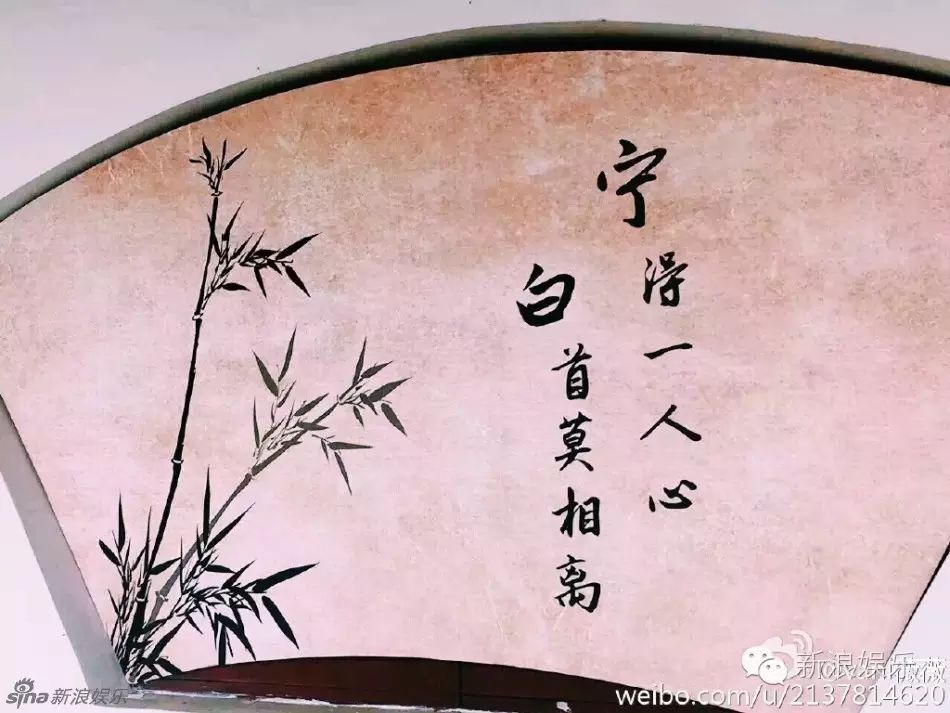 宁得一人心
白首莫相离
sina新浪娱乐
新浪娱乐
weibo.com/u/2137814620